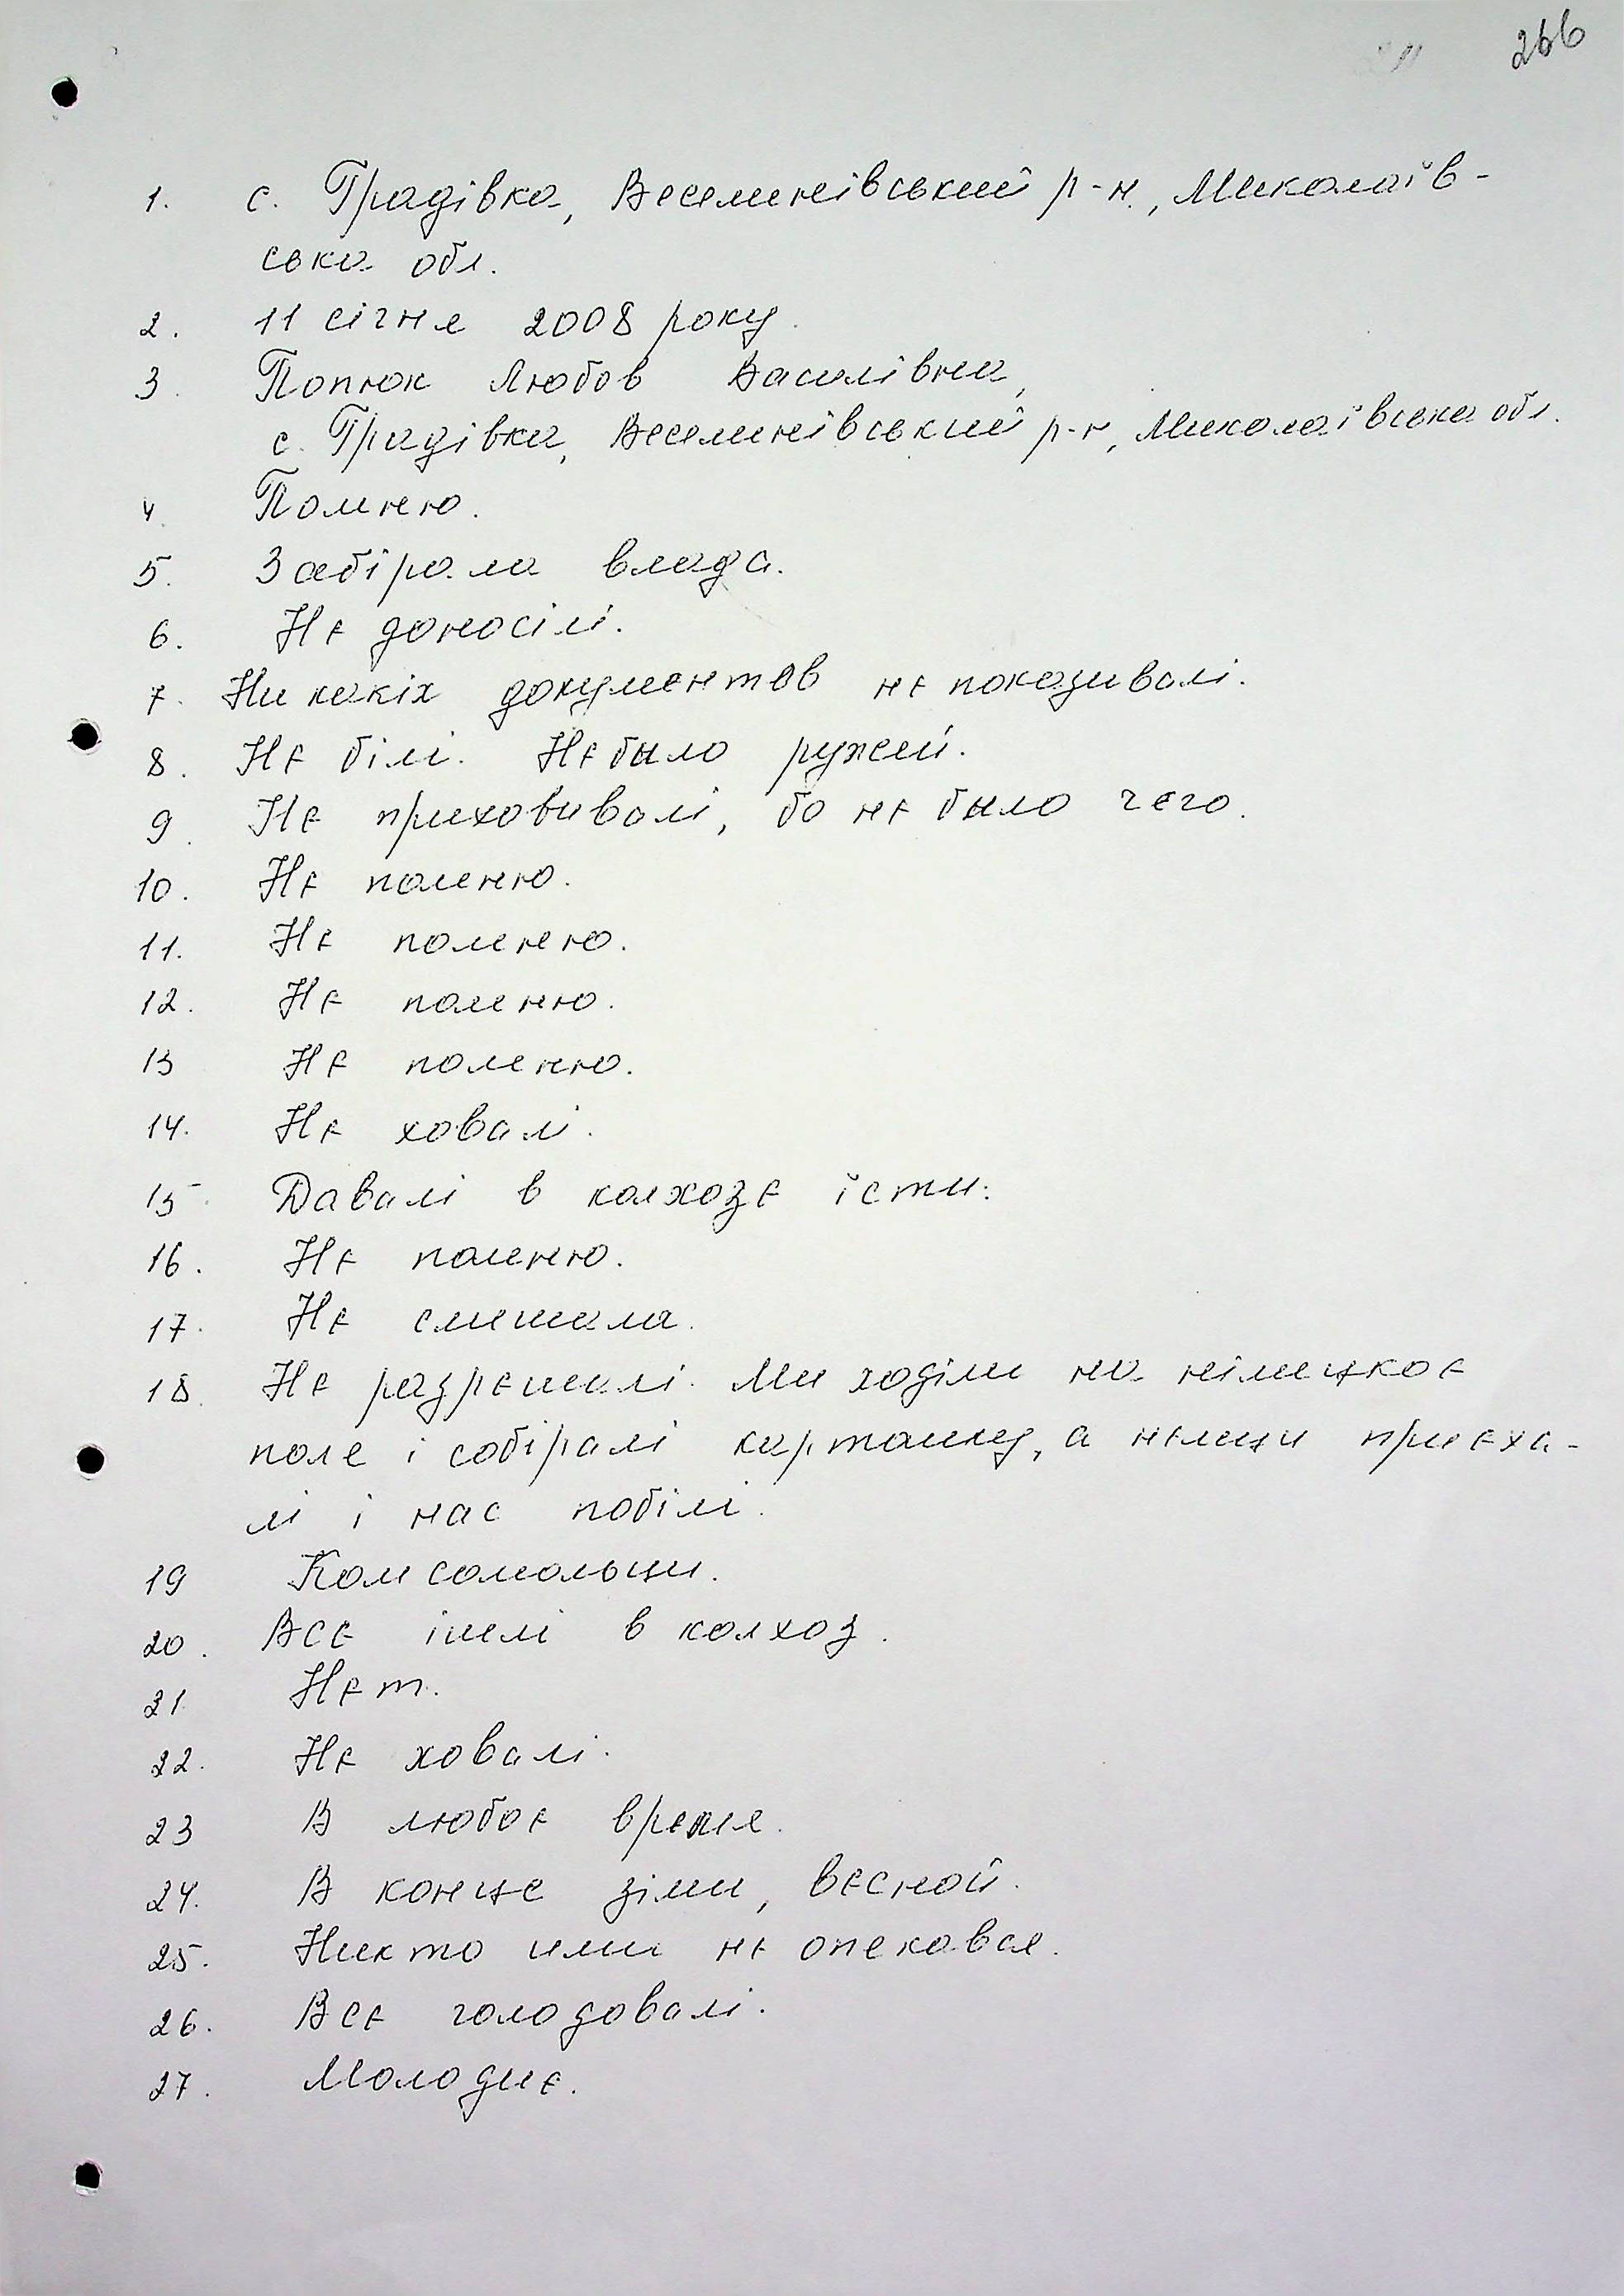 266
1. с. Градівка, Веселинівський р-н., Миколаїв-
ська обл.
2. 11 січня 2008 року.
3. Попюк Любов Василівна,
с. Градівка, Веселинівський р-н, Миколаївська обл.
4. Помню.
5. Забірала влада.
6. Нє доносілі.
7. Ни какіх документов нє показивалі.
8. Нє білі. Нє было ружей.
9. Нє приховивалі, бо нє было чего.
10. Нє помню.
11. Нє помню.
12. Нє помню.
13 Нє помню.
14. Нє ховалі.
15 Давалі в колхозє їсти.
16. Нє помню.
17. Нє слишала.
18. Нє разрєшалі. Ми ходіли на німецкоє
полє і собіралі картошку, а нємци приєха-
лі і нас побілі.
19 Комсомольци.
20. Всє ішлі в колхоз.
21. Нєт.
22. Нє ховалі.
23 В любоє врємя.
24. В конце зіми, вєсной.
25. Никто ими нє опекався.
26. Всє голодовалі.
27. Молодиє.